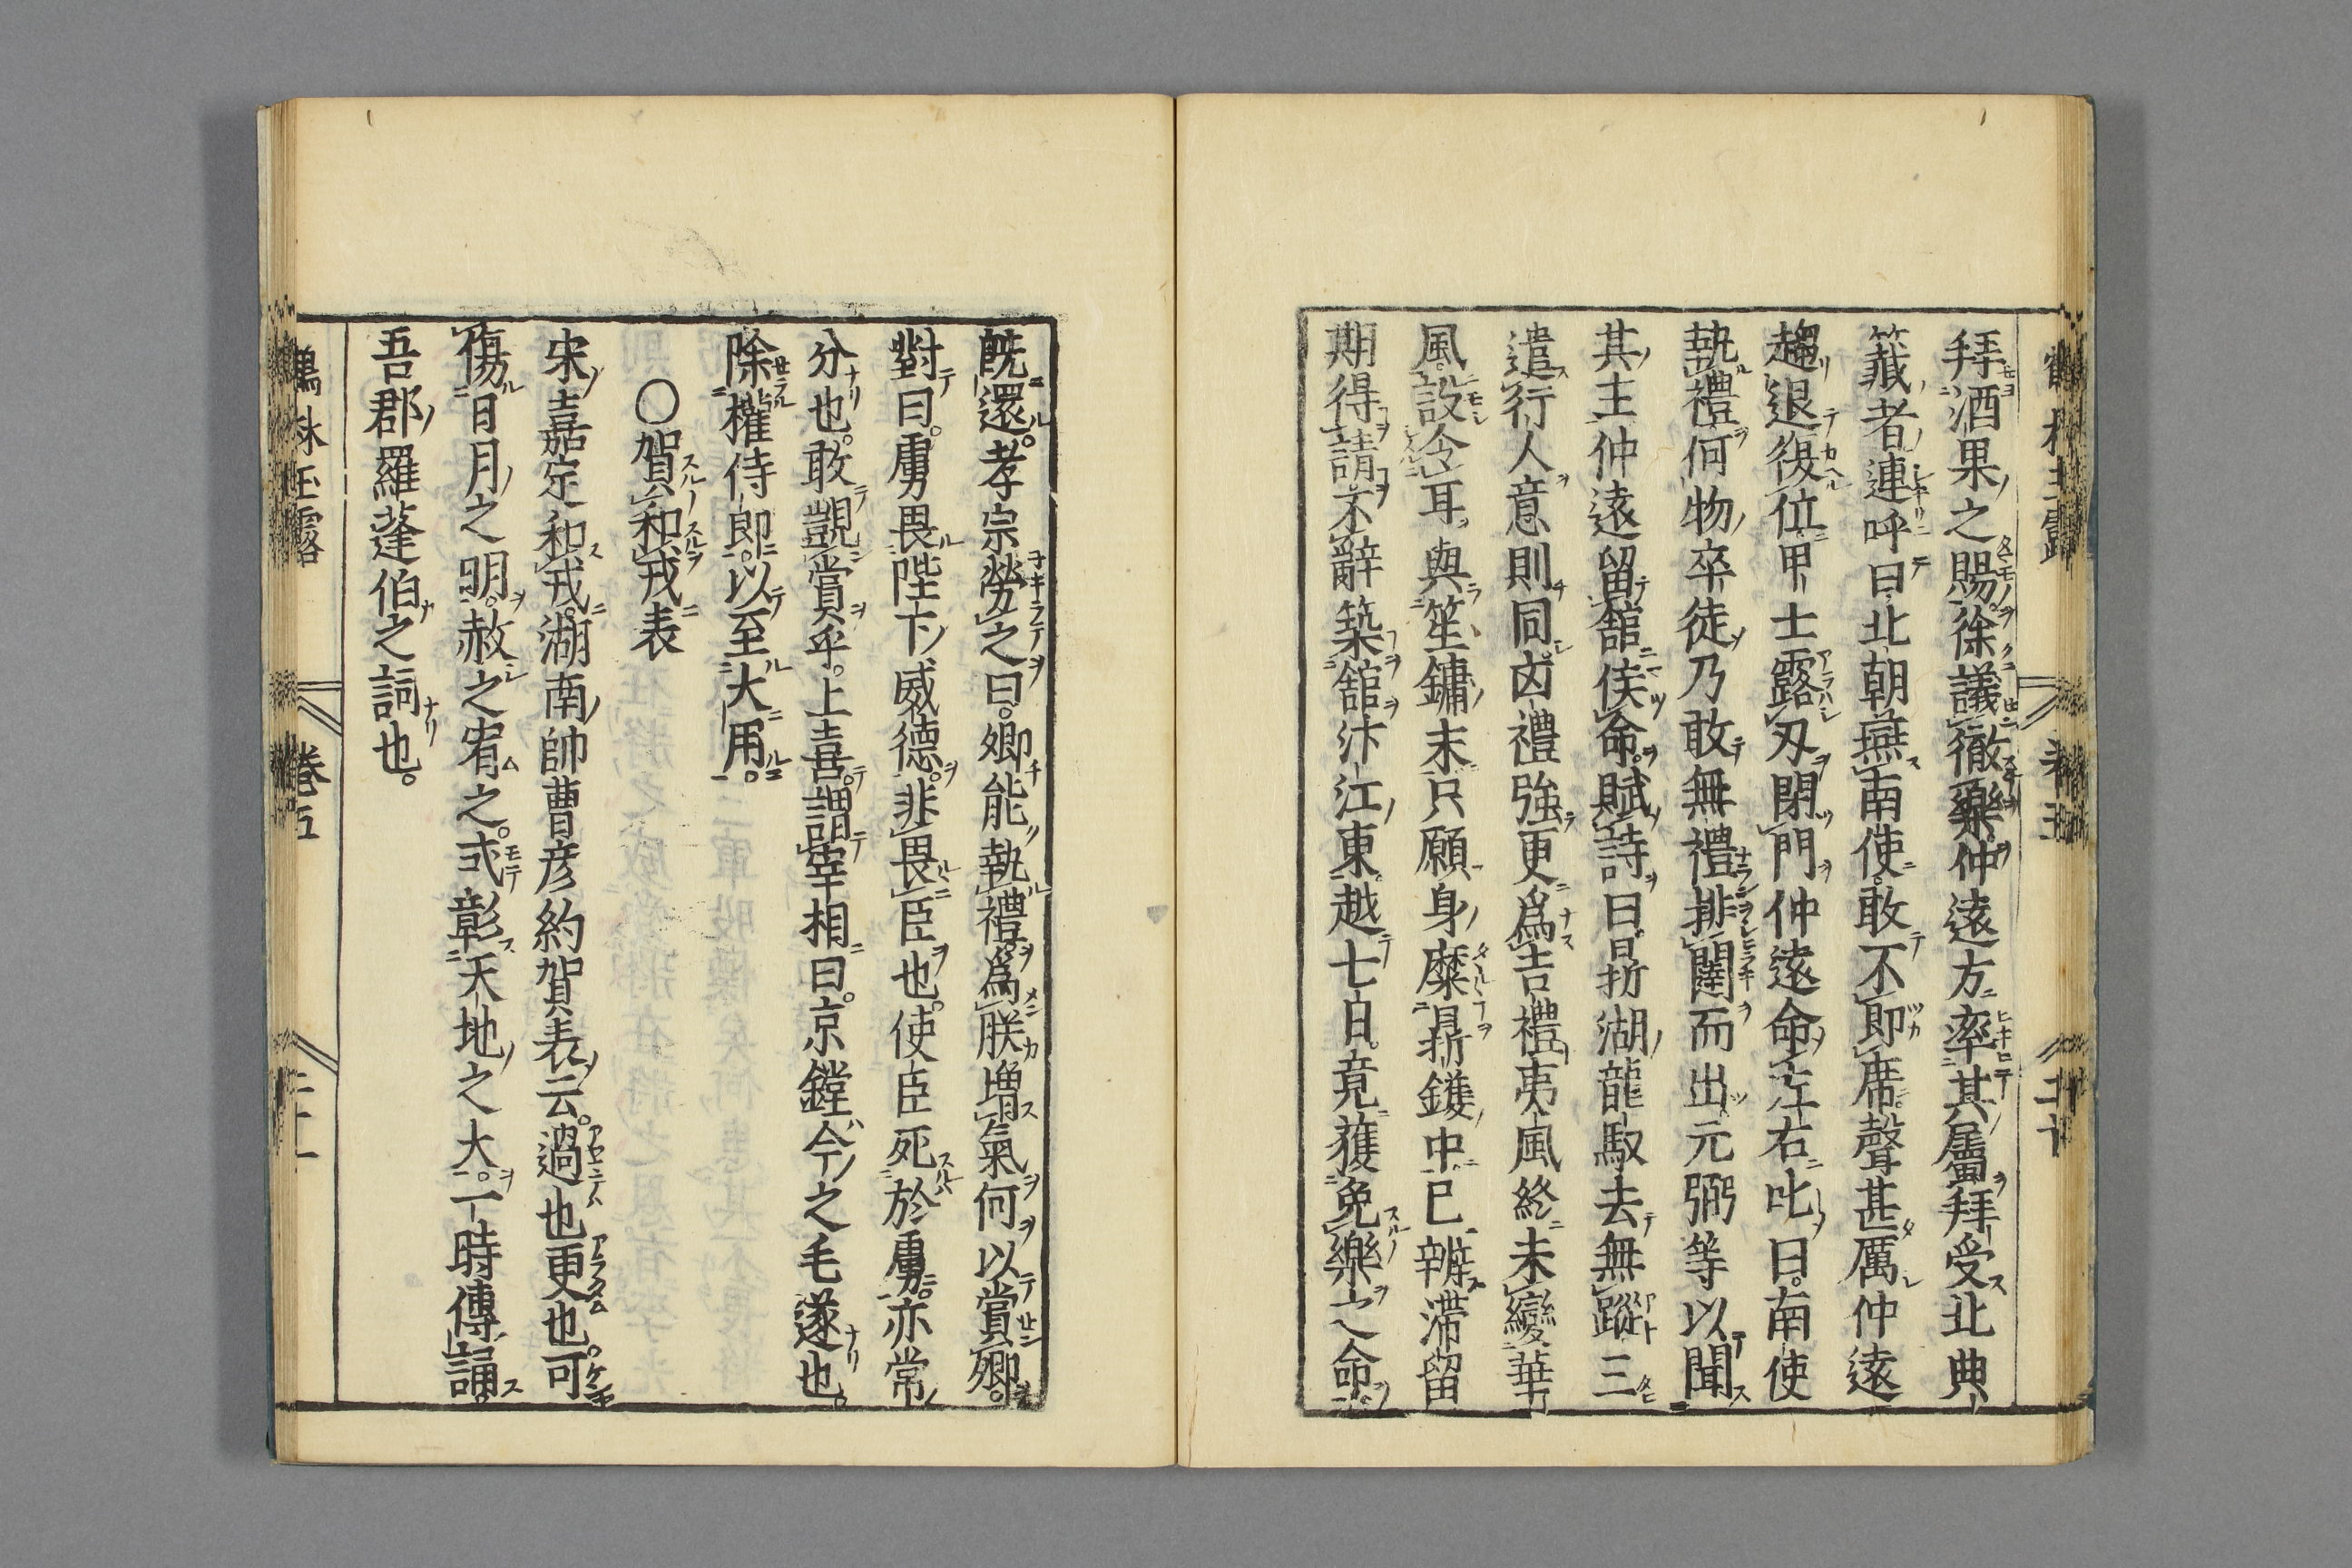 拜酒果之賜徐議徹樂仲遠方率其屬拜受北典
籤者連呼曰北朝燕南使敢不即席聲甚厲仲遠
趨退復位甲士露刃閉門仲遠命左右叱曰南使
執禮何物卒徒乃敢無禮排闥而出元弼等以聞
其主仲遠留舘俟命賦詩曰鼎湖龍馭去無蹤三
遣行人意則同凶禮強更爲吉禮夷風終未變華
風設令耳與笙鏞末只願身麋鼎鑊中已辦滯留
期得請不辭築舘汴江東越七日竟獲免樂之命
既還孝宗勞之曰卿能執禮爲朕增氣何以賞卿
對曰虜畏陛下威德非畏臣也使臣死於虜亦常
分也敢覬賞乎上喜謂宰相曰京鏜今之毛遂也
除權侍郎以至大用
○賀和戎表
宋嘉定和戎湖南帥曹彦約賀表云過也更也可
傷日月之明赦之宥之式彰天地之大一時傳誦
吾郡羅蓬伯之詞也
鶴林玉露 卷五